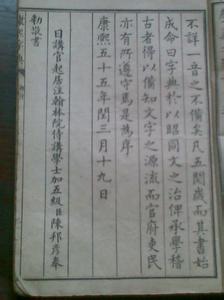 不詳一音之不備矣凡五閱歲而其書始
成命曰字典於以昭同文之治俾承學稽
古者得以備知文字之源流而官府吏民
亦有所遵守焉是爲序
康熙五十五年閏三月十九日
日講官起居注翰林院侍講學士加五級臣陳邦彥奉
勑敬書